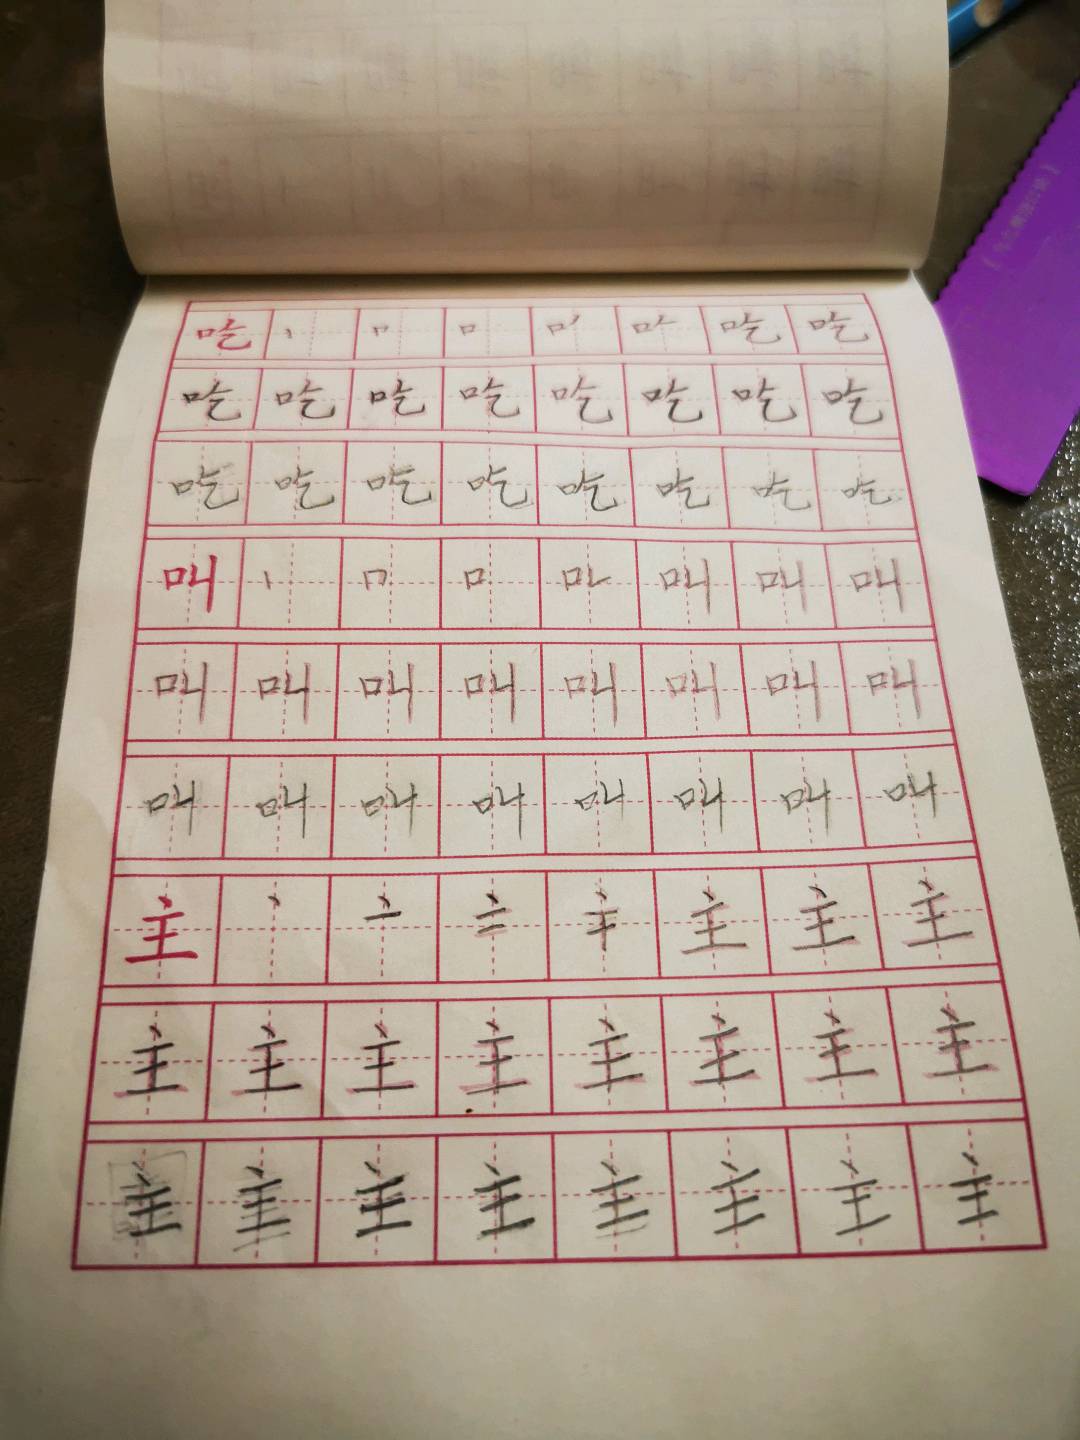 吃 丨 冂 口 吃 吃
吃 吃 吃 吃 吃 吃 吃 吃
吃 吃 吃 吃 吃 吃 吃 吃
叫 丨 冂 口 叫 叫 叫
叫 叫 叫 叫 叫 叫 叫 叫
叫 叫 叫 叫 叫 叫 叫 叫
主 丶 亠 主 主 主
主 主 主 主 主 主 主 主
主 主 主 主 主 主 主 主